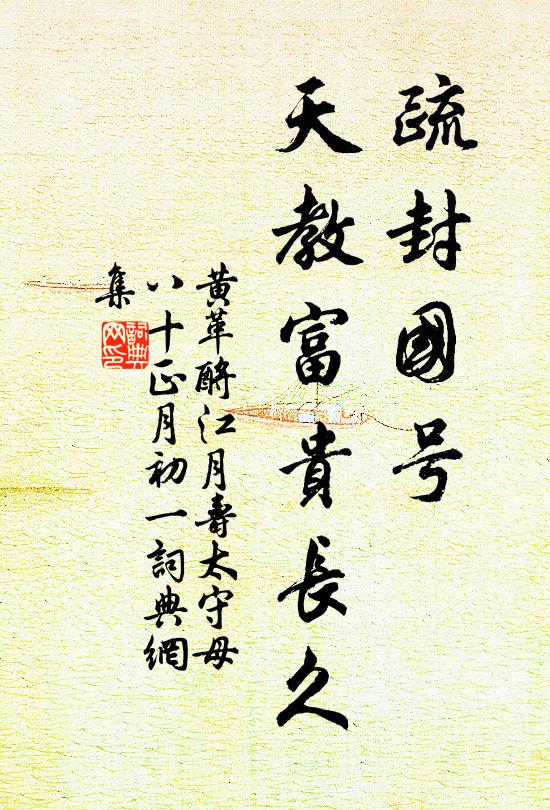 疏封國号
天教富貴長久
黄革酹江月壽太守母
八十正月初一詞典網
集
詞典
网印